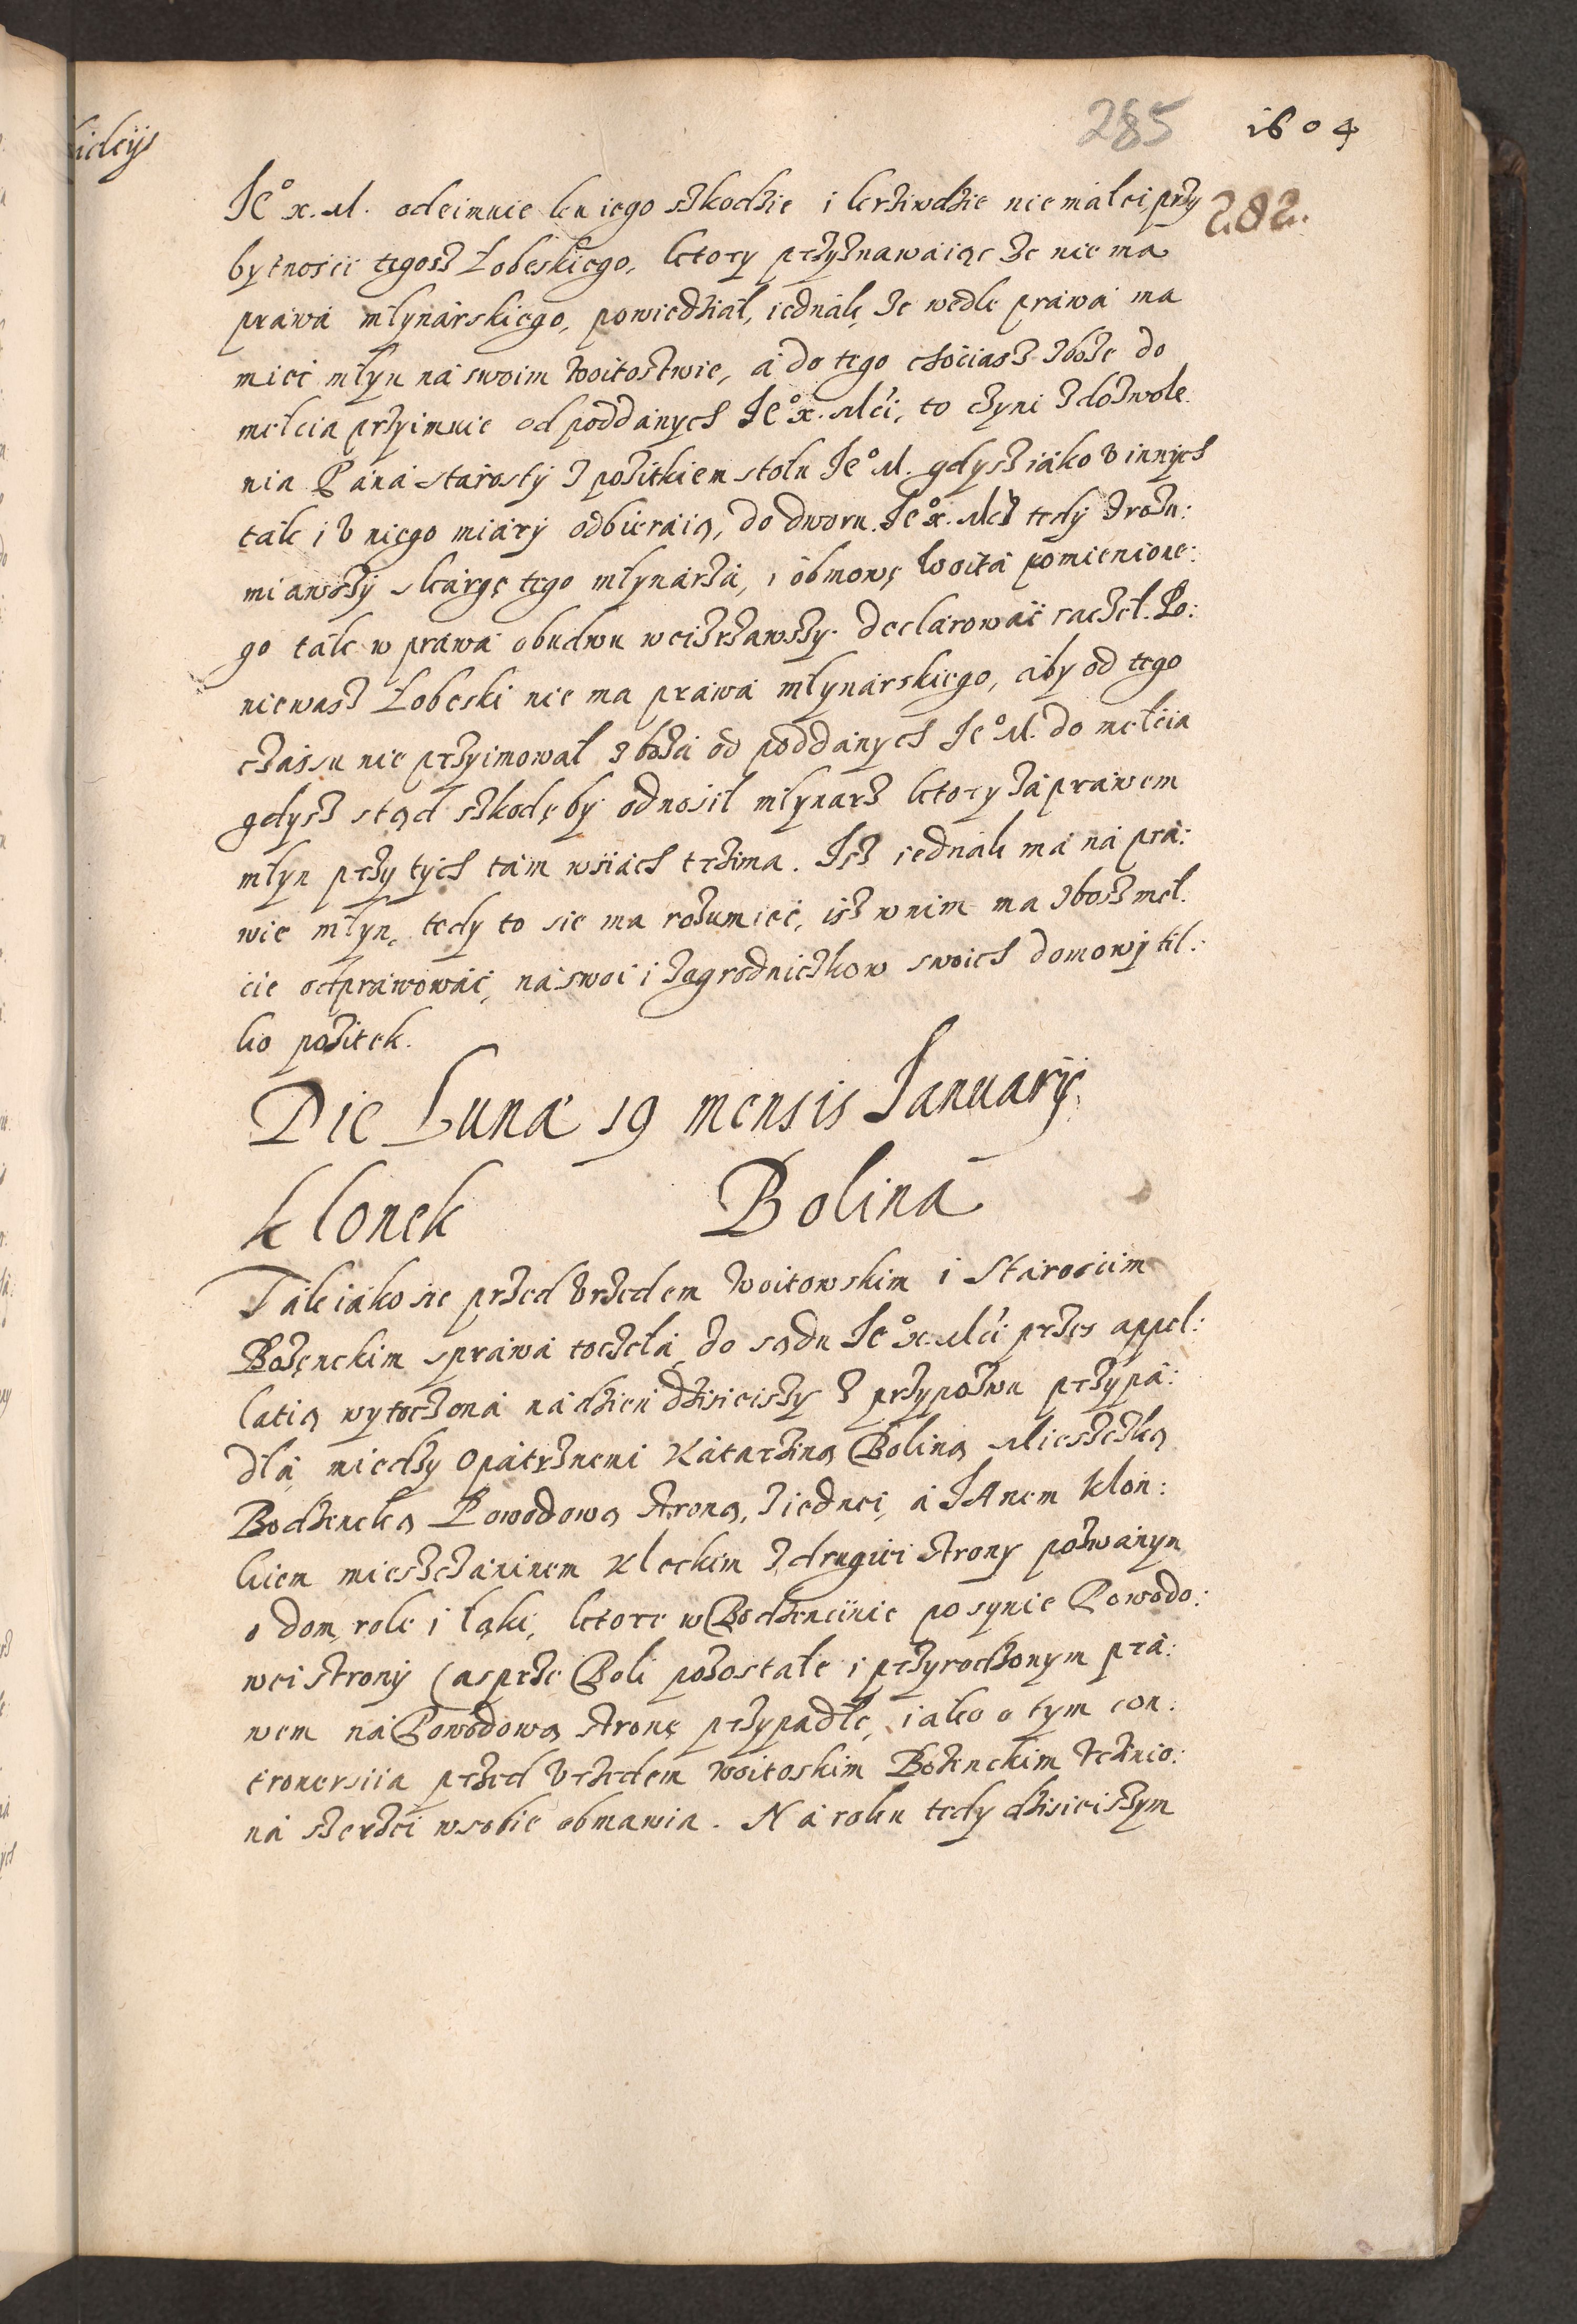 285 1604
282.
idcijs
Ie° x. M. odeimuie ku iego szkodzie i krziwdzie niemałei, przy
bytności tegosz Łobeskiego, ktory przyznawaiąc że nie ma
prawá młynárskiego, powiedział, iednák, że wedle práwá ma
mieć młyn ná swoim woitostwie, á do tego chociasz zboże do
mełcia przyimuie od poddánych Ie° x. Mći, to czyni z dozwole:
nia Páná stárosty z pożitkiem stołu Ie° M. gdysz iáko v innych
ták i v niego miáry odbieráią, do dworu Ie° x. Mći tedy zrozu:
miawszy skárgę tego młynárzá, i obmowę woitá pomienione:
go ták w práwá obudwu weizrzawszy declárowáć raczeł. Po:
niewasz Łobeski nie ma práwá młynárskiego, áby od tego
czássu nie przyimował zbożá od poddánych Ie° M. do mełcia
gdysz stąd szkodę by odnosił młynarz ktory zá práwem
młyn przy tych tám wsiách trzima. Isz iednák má ná prá:
wie młyn, tedy to sie ma rozumieć, isz w nim ma zbosz meł:
cie odpráwowáć, ná swoi i zagrodniczkow swoich domowy til:
ko pożitek.
Die Lunæ 19 mensis Ianuarij.
Klonek Bolina
Ták iáko sie przed vrzędem woitowskim i Stárościm
Bożęnckim spráwá toczełá, do sądu Ie° x. Mći przes appel:
latią wytoczoná ná dzień dzisieiszy z przypozwu przypá:
dłá, miedzy opátrznemi Kátárziną Boliną Mieszczką
Bodzencką Powodową stroną, z iednei, á IAnem Klon:
kiem mieszczaninem Kleckim z drugiei strony pozwánym
o dom, role i łąki, ktore w Bodzencinie po synie Powodo:
wei strony Casprze Boli pozostałe i przyrodzonym prá:
wem ná Powodową stronę przypadłe, iáko o tym con:
trouersiia przed vrzedem woitoskim Bożenckim vczinio:
ná szerzei w sobie obmawia. Ná roku tedy dzisieiszym